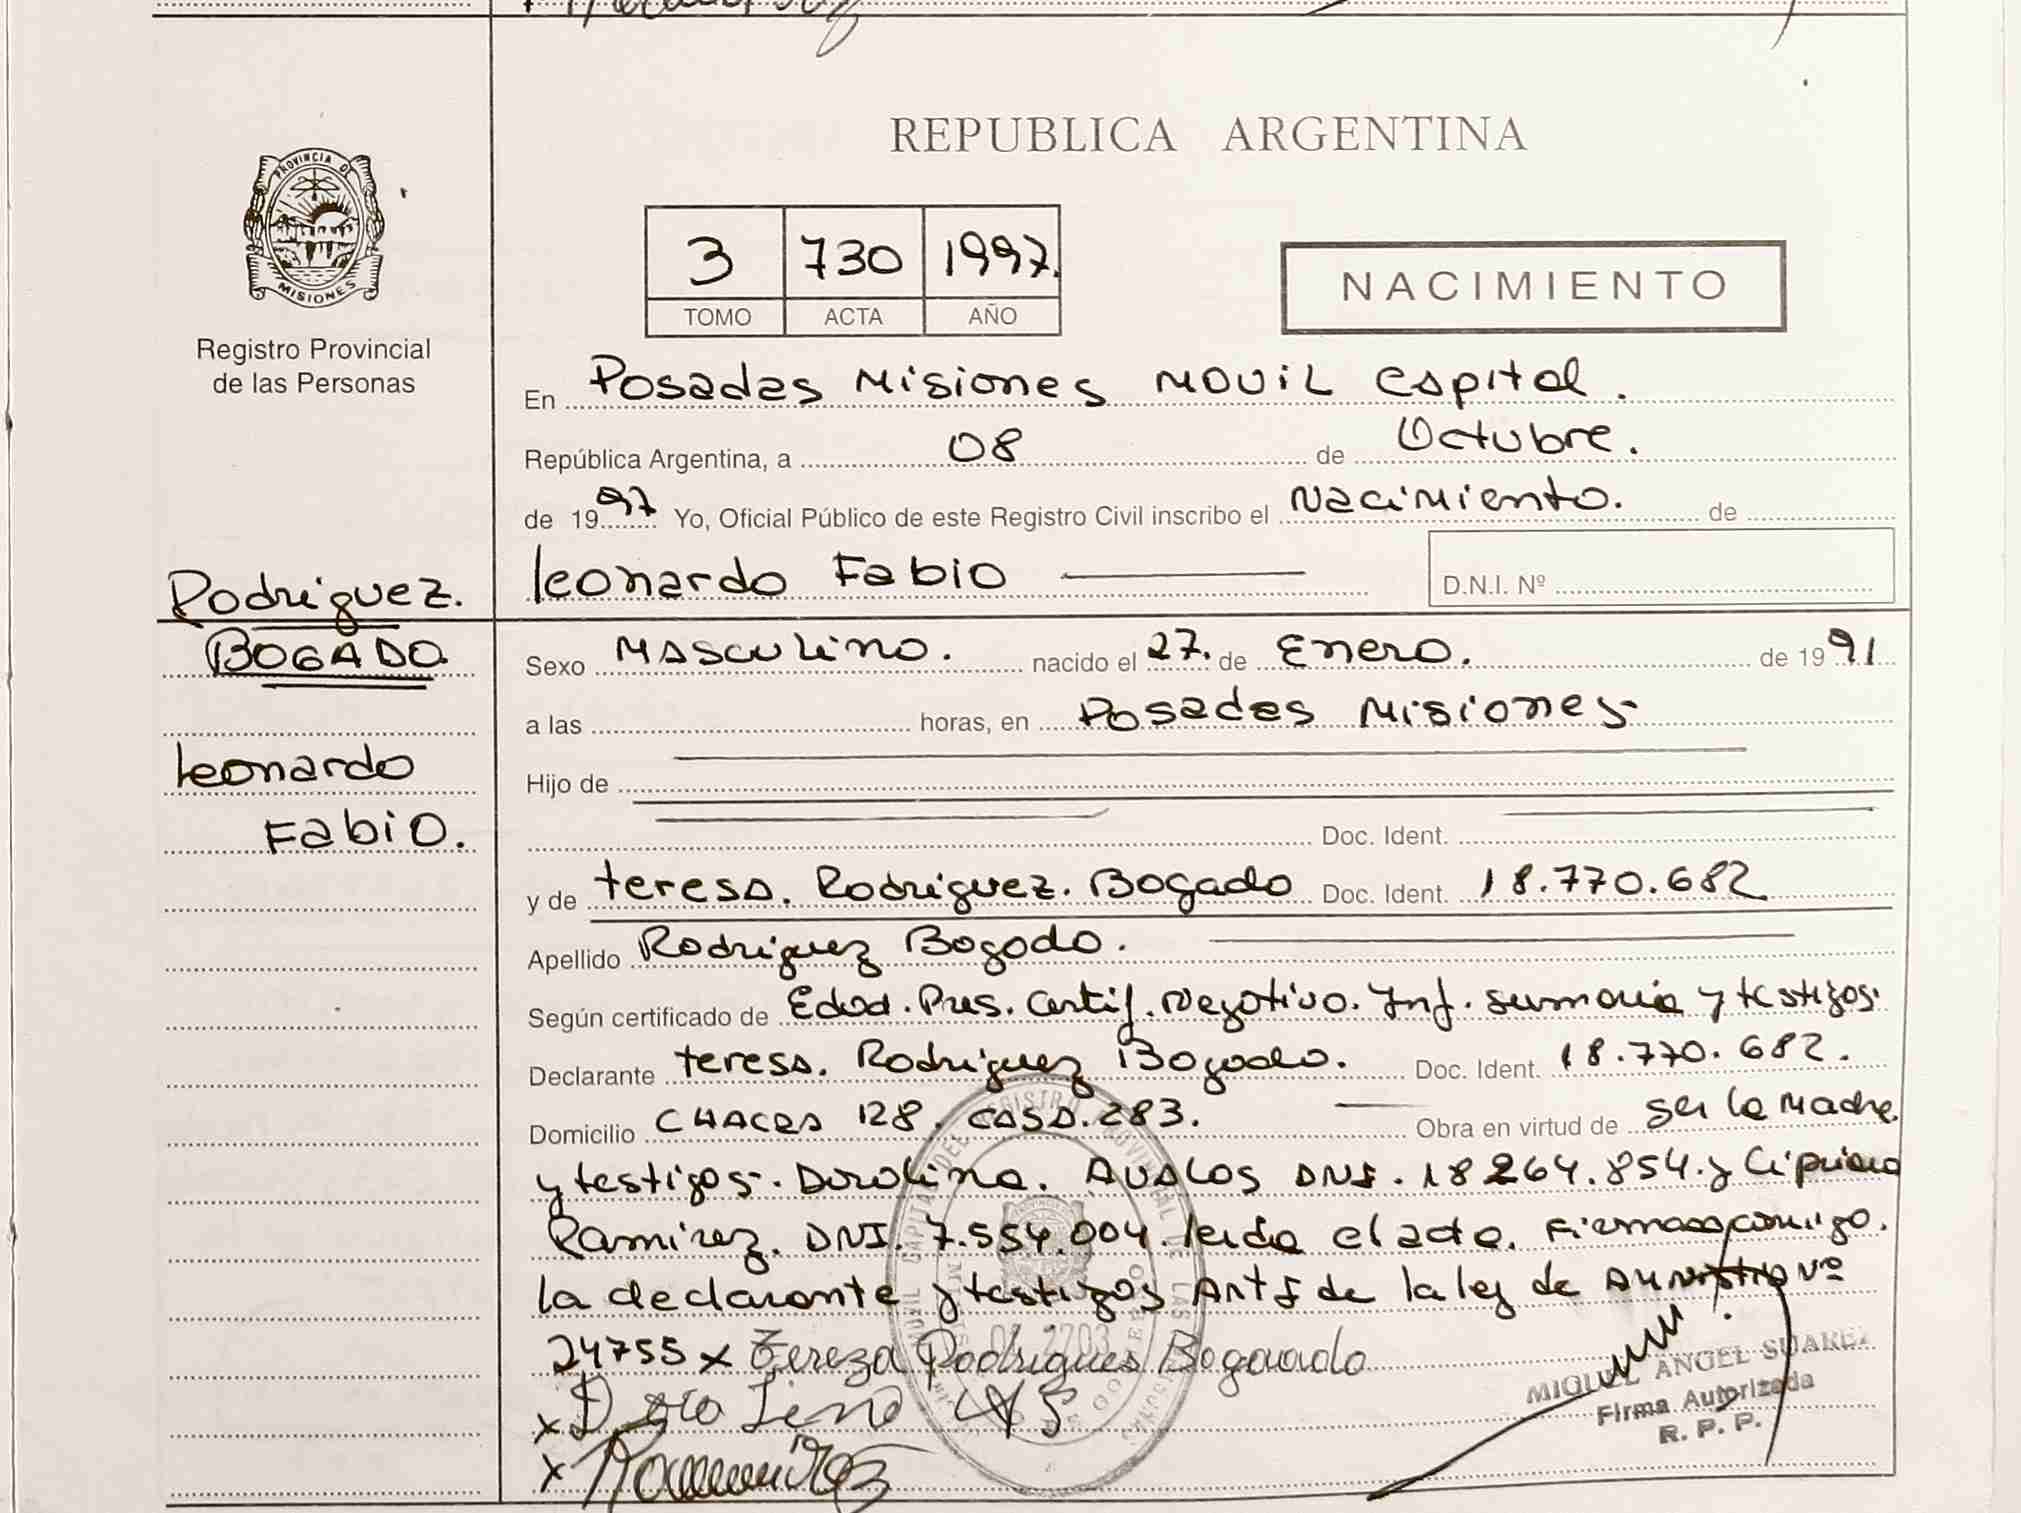 REPUBLICA ARGENTINA
PROVINCIA DE
MISIONES
Registro Provincial
de las Personas
3 730 1997.
TOMO ACTA AÑO
NACIMIENTO
En Posadas Misiones MOVIL Capital.
República Argentina, a 08 de Octubre.
de 1997 Yo, Oficial Público de este Registro Civil inscribo el Nacimiento. de
leonardo Fabio D.N.I. Nº
Rodriguez.
BOGADO
leonardo
Fabio.
Sexo MAsculino. nacido el 27. de Enero. de 1991
a las horas, en Posadas Misiones
Hijo de
Doc. Ident.
y de teresa. Rodriguez. Bogado Doc. Ident. 18.770.682
Apellido Rodriguez Bogado.
Según certificado de Edad. Pres. Certif. Negativo. Inf. sumaria y testigos.
Declarante teresa. Rodriguez Bogado. Doc. Ident. 18.770.682.
Domicilio CHACRA 128. CASA.283. Obra en virtud de ser la Madre
y testigos. Dorolina. AVALOS DNI. 18264.854. y Cipriano
Ramirez. DNI. 7.554.004. leida el acta. Firman conmigo.
la declarante y testigos Art 5 de la ley de Amnistia Nº
24755 x Tereza Rodrigues Bogaado
x Doro Lina
x Ramirez
MIGUEL ANGEL SUAREZ
Firma Autorizada
R. P. P.